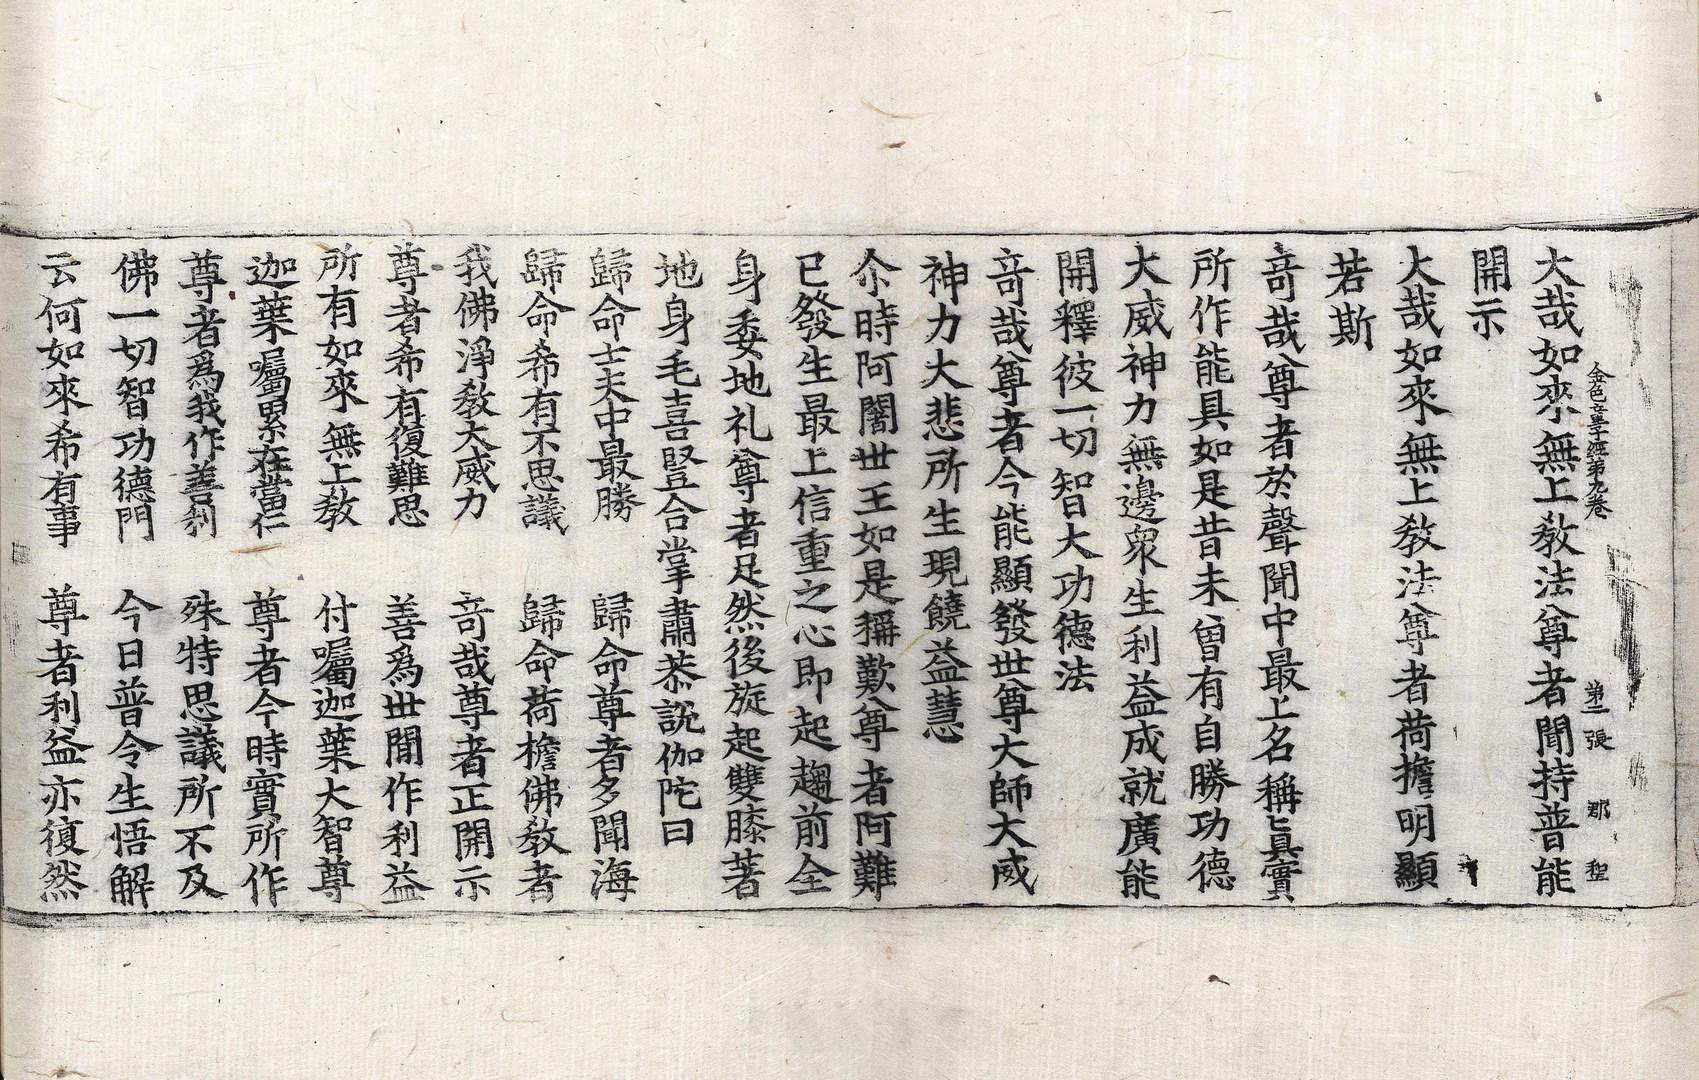 金色童子經第九卷 第二張 郡 聖
大哉如來無上教法尊者聞持普能
開示
大哉如來無上教法尊者荷擔明顯
若斯
竒哉尊者於聲聞中最上名稱眞實
所作能具如是昔未曽有自勝功德
大威神力無邊衆生利益成就廣能
開釋彼一切智大功德法
竒哉尊者今能顯發世尊大師大威
神力大悲所生現饒益慧
尒時阿闍世王如是稱歎尊者阿難
已發生最上信重之心即起趨前全
身委地礼尊者足然後旋起雙膝著
地身毛喜豎合掌肅恭說伽陀曰
歸命士夫中最勝 歸命尊者多聞海
歸命希有不思議 歸命荷擔佛教者
我佛淨教大威力 竒哉尊者正開示
尊者希有復難思 善爲世間作利益
所有如來無上教 付囑迦葉大智尊
迦葉囑累在當仁 尊者今時實所作
尊者爲我作善利 殊特思議所不及
佛一切智功德門 今日普令生悟解
云何如來希有事 尊者利益亦復然